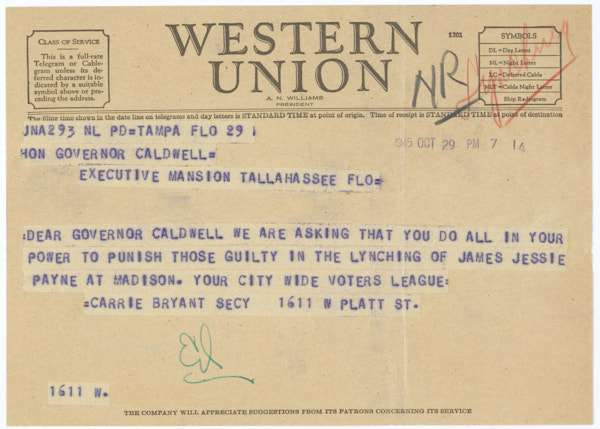 CLASS OF SERVICE
This is a full-rate
Telegram or Cable-
gram unless its de-
ferred character is in-
dicated by a suitable
symbol above or pre-
ceding the address.
WESTERN
UNION
A. N. WILLIAMS
PRESIDENT
1201
SYMBOLS
DL=Day Letter
NL=Night Letter
LC=Deferred Cable
NLT=Cable Night Letter
Ship Radiogram
NR
Lynching
The filing time shown in the date line on telegrams and day letters is STANDARD TIME at point of origin. Time of receipt is STANDARD TIME at point of destination
JNA293 NL PD=TAMPA FLO 29
1945 OCT 29 PM 7 14
HON GOVERNOR CALDWELL=
EXECUTIVE MANSION TALLAHASSEE FLO=
:DEAR GOVERNOR CALDWELL WE ARE ASKING THAT YOU DO ALL IN YOUR
POWER TO PUNISH THOSE GUILTY IN THE LYNCHING OF JAMES JESSIE
PAYNE AT MADISON. YOUR CITY WIDE VOTERS LEAGUE:
=CARRIE BRYANT SECY 1611 W PLATT ST.
1611 W.
THE COMPANY WILL APPRECIATE SUGGESTIONS FROM ITS PATRONS CONCERNING ITS SERVICE